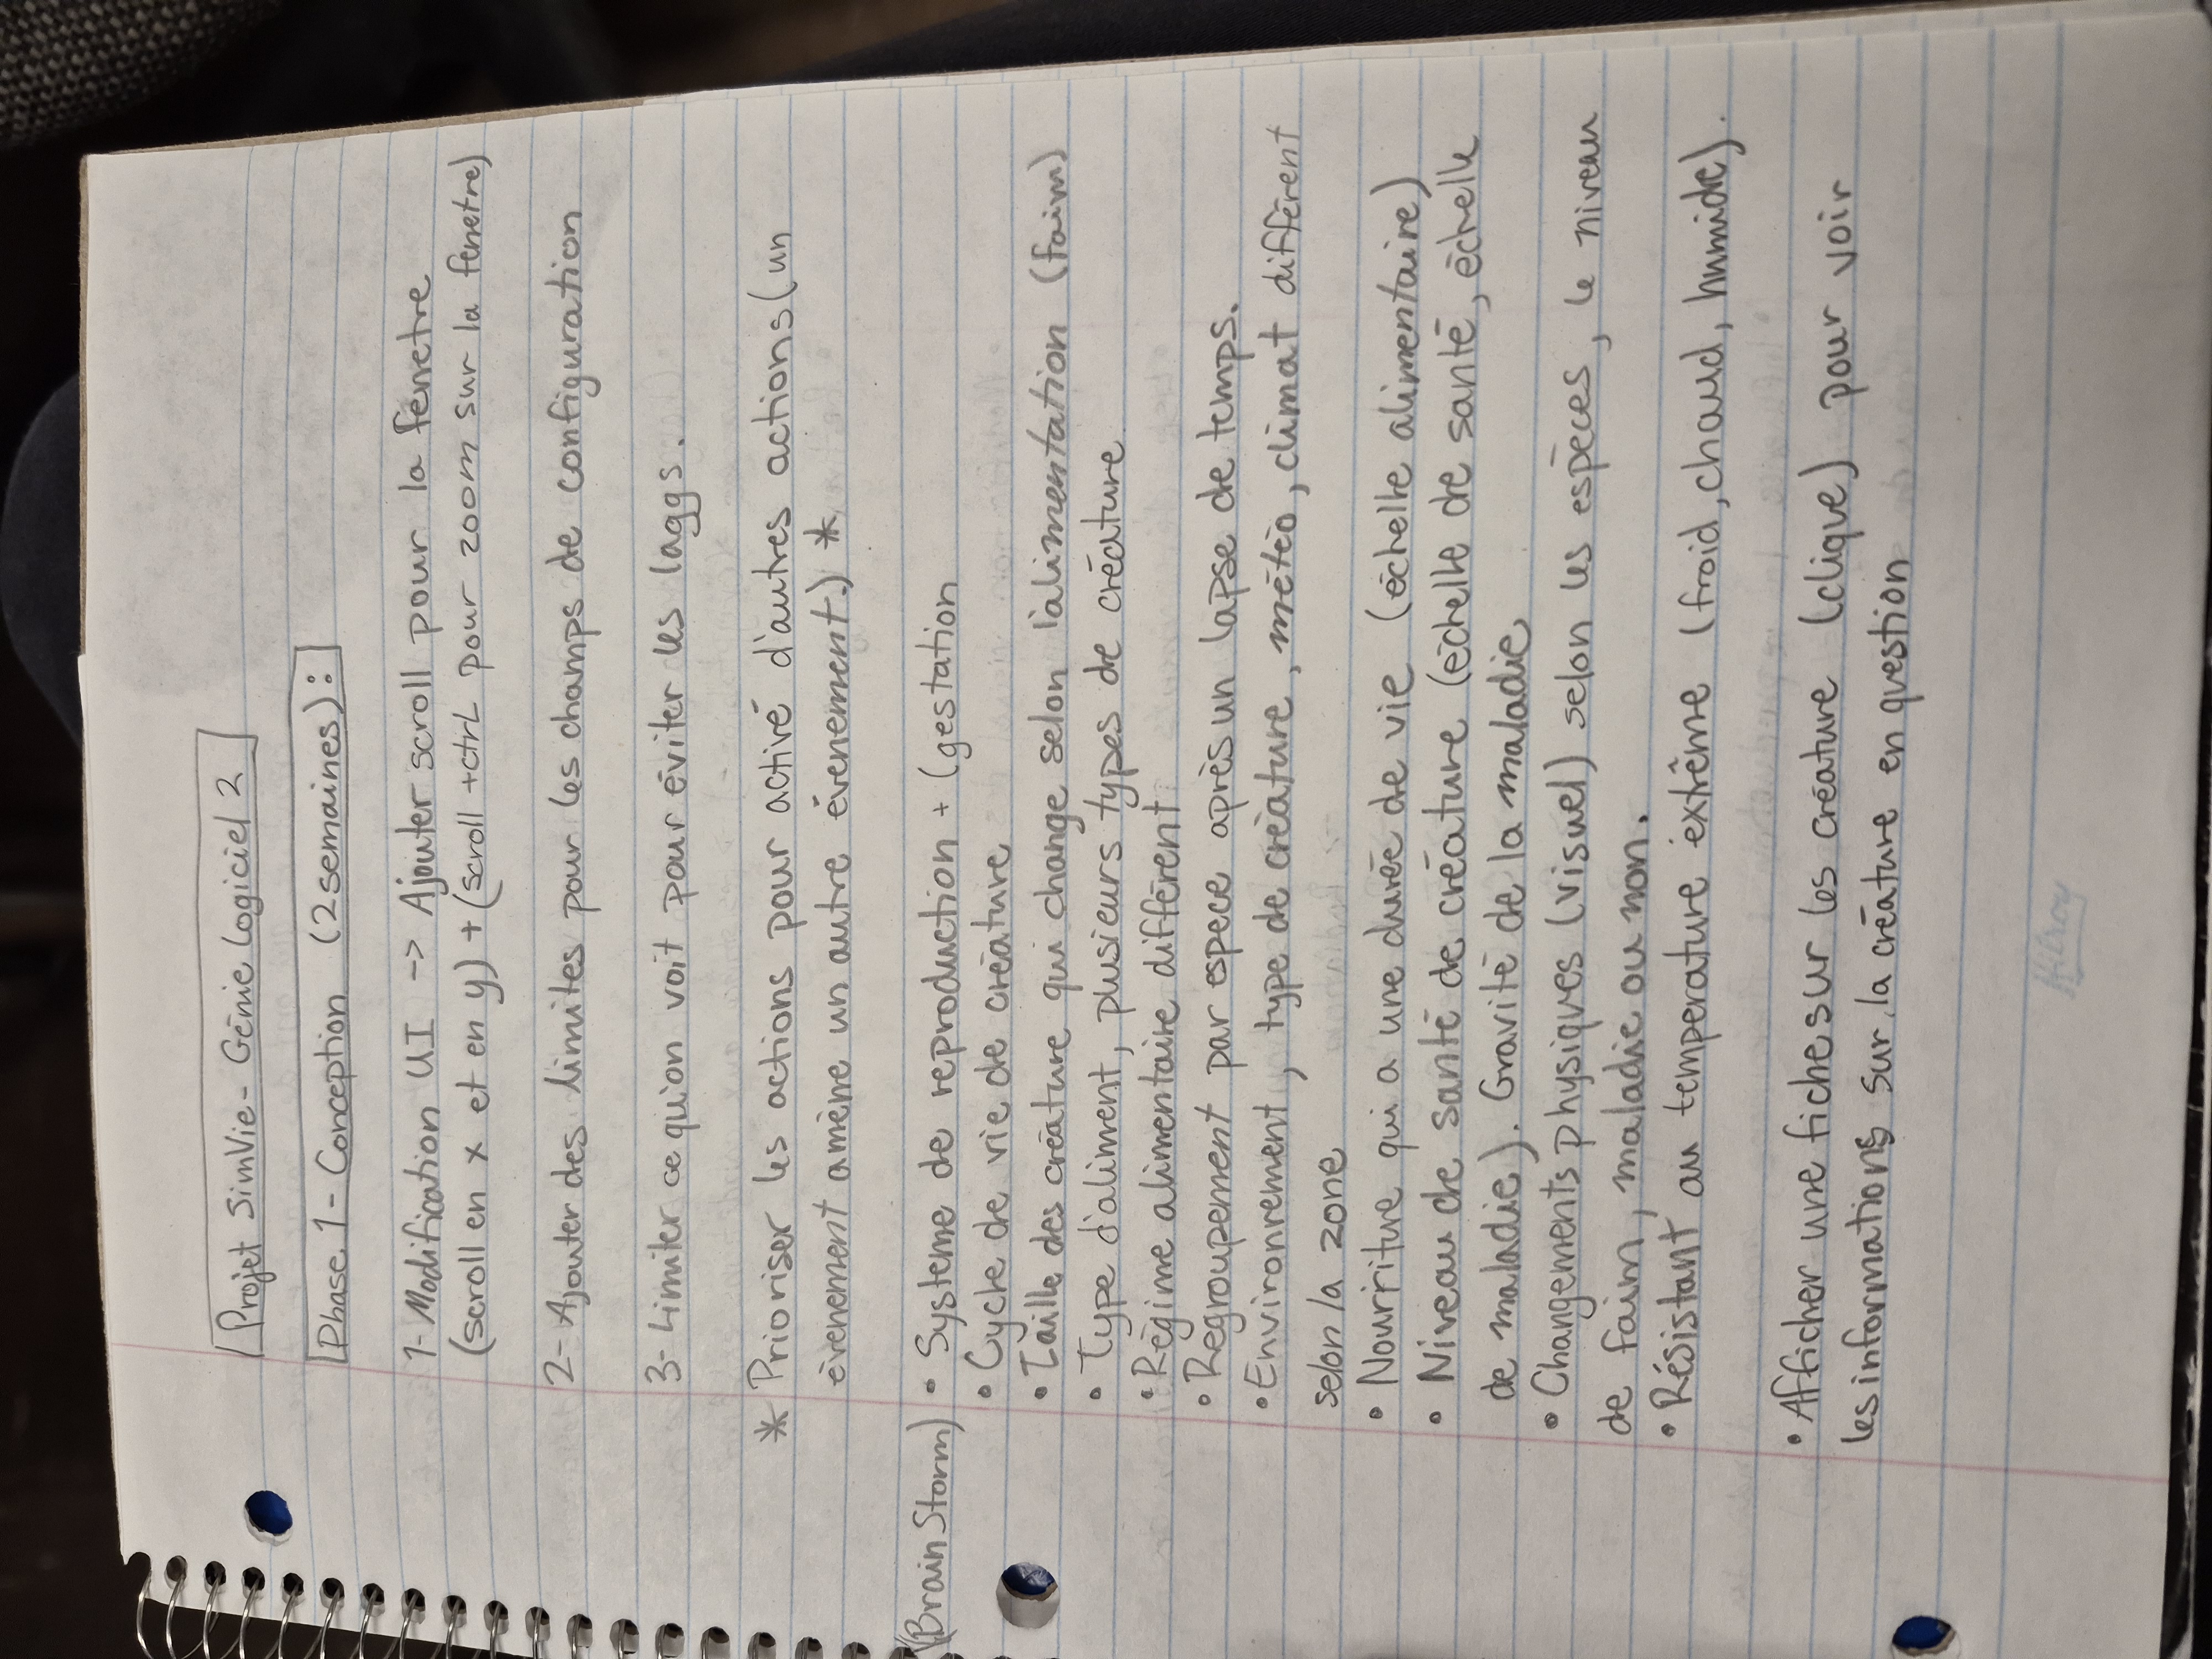 Projet SimVie - Génie Logiciel 2
Phase 1 - Conception (2 semaines) :
1- Modification UI -> Ajouter scroll pour la fenetre
(scroll en x et en y) + (scroll + ctrL pour zoom sur la fenetre)
2- Ajouter des limites pour les champs de configuration
3- Limiter ce qu'on voit pour éviter les laggs.
* Prioriser les actions pour activé d'autres actions (un
évenement amène un autre évenement.) *
(Brain Storm) • Systeme de reproduction + (gestation
• Cycle de vie de créature
• Taille des créature qui change selon l'alimentation (faim)
• Type d'aliment, plusieurs types de créature
• Régime alimentaire différent
• Regroupement par espece après un lapse de temps.
• Environnement, type de créature, météo, climat différent
selon la zone
• Nourriture qui a une durée de vie (échelle alimentaire)
• Niveau de santé de créature (échelle de santé, échelle
de maladie). Gravité de la maladie
• Changements physiques (visuel) selon les espèces, le niveau
de faim, maladie ou non.
• Résistant au temperature extrême (froid, chaud, humide).
• Afficher une fiche sur les créature (clique) pour voir
les informations sur la créature en question
Hilroy